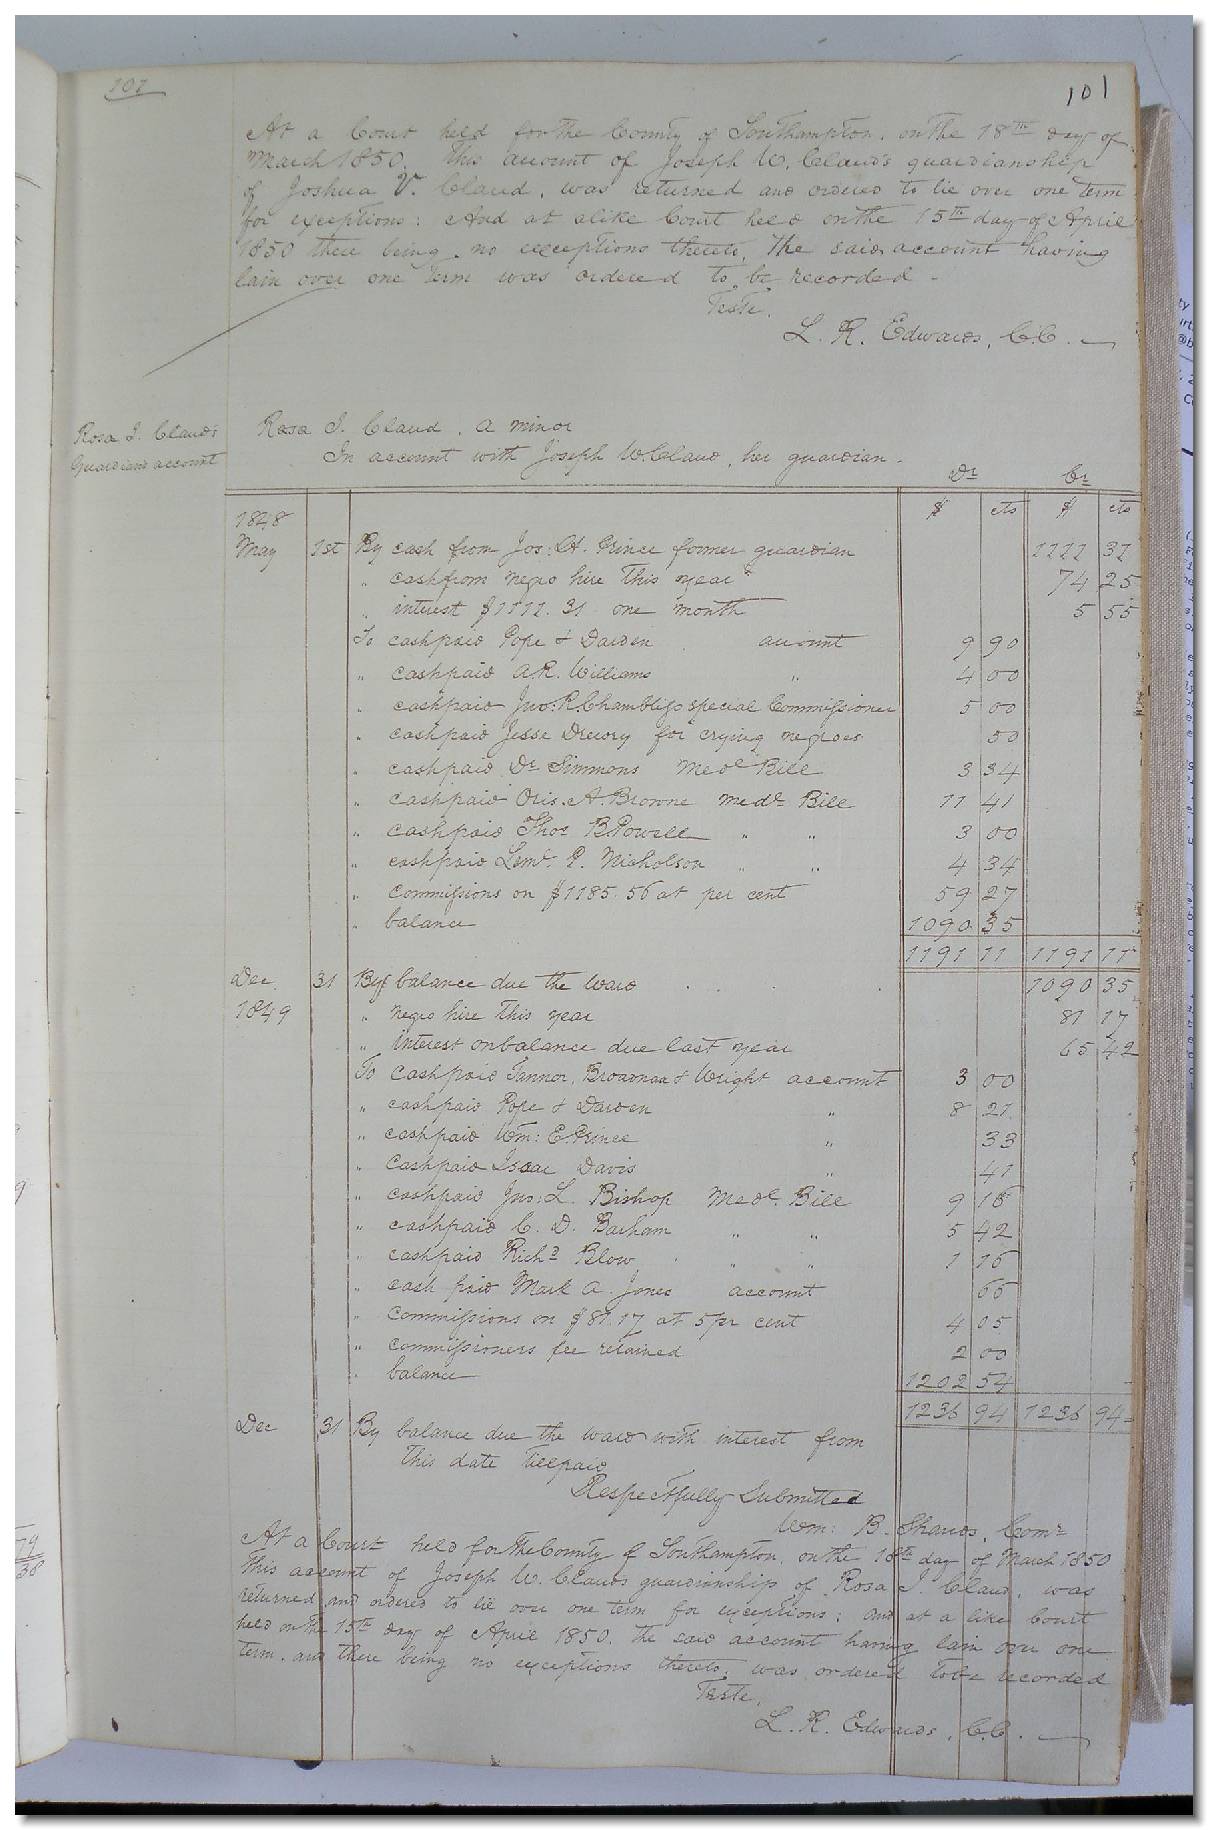 101
101
At a Court held for the County of Southampton, on the 18th day of
March 1850. This account of Joseph W. Claud's guardianship
of Joshua V. Claud, was returned and ordered to lie over one term
for exceptions: And at alike Court held on the 15th day of April
1850 there being no exceptions thereto, the said account having
lain over one term was ordered to be recorded -
Teste.
L. R. Edwards, C.C.
Rosa J. Claud's
Guardians account
Rosa J. Claud, a minor
In account with Joseph W. Claud, her guardian.
Dr Cr
$ cts $ cts
1848
May 1st By cash from Jos: H. Prince former guardian 1111 31
" cash from negro hire this year 74 25
" interest $1111.31 one month 5 55
To cash paid Pope & Darden account 9 90
" cash paid A R. Williams " 4 00
" cash paid Jno. R. Chambliss special Commissioner 5 00
" cash paid Jesse Drewry for crying negroes 50
" cash paid Dr Simmons Medl Bill 3 34
" cash paid Oris. A. Browne Medl Bill 11 41
" cash paid Thos B Powell " " 3 00
" cash paid Leml. P. Nicholson " " 4 34
" commissions on $1185.56 at per cent 59 27
" balance 1090 35
1191 11 1191 11
Dec. 31 By balance due the ward 1090 35
1849 " negro hire this year 81 17
" interest on balance due last year 65 42
To cash paid Tannor, & Wright account 3 00
" cash paid Pope & Darden " 8 21
" cash paid Wm: E Prince " 33
" cash paid Isaac Davis " 41
" cash paid Jno: L. Bishop Medl. Bill 9 18
" cash paid C. D. Barham " " 5 42
" cash paid Richd Blow " " 1 16
" cash paid Mark A. Jones account 66
" commissions on $81.17 at 5 pr cent 4 05
" commissioners fee retained 2 00
" balance 1202 54
1236 94 1236 94
Dec 31 By balance due the ward with interest from
this date till paid
Respectfully Submitted
Wm: B. Shands, Comr
At a Court held for the County of Southampton, on the 18th day of March 1850
this account of Joseph W. Clauds guardianship of Rosa J. Claud, was
returned and ordered to lie over one term for exceptions; and at a like Court
held on the 15th day of April 1850. the said account having lain over one
term. and there being no exceptions thereto, was ordered to be recorded
Teste,
L. R. Edwards, C.C.